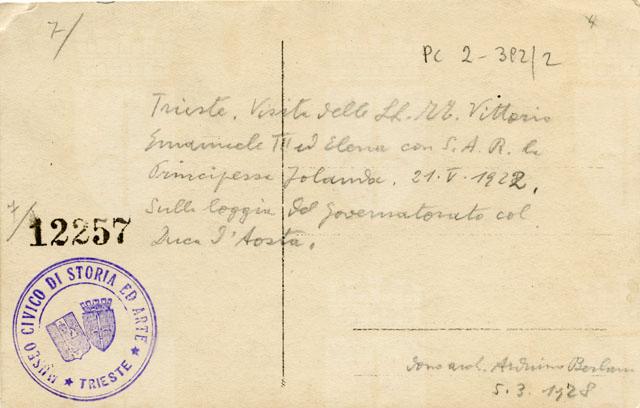 7/
4
PC 2-392/2
Trieste. Visita delle LL. MM. Vittorio
Emanuele III ed Elena con S. A. R. la
Principessa Jolanda. 21.V.1922.
Sulla loggia del Governatorato col
Duca d'Aosta.
7/
12257
MUSEO CIVICO DI STORIA ED ARTE
★ TRIESTE ★
dono arch. Arduino Berlam
5.3.1928